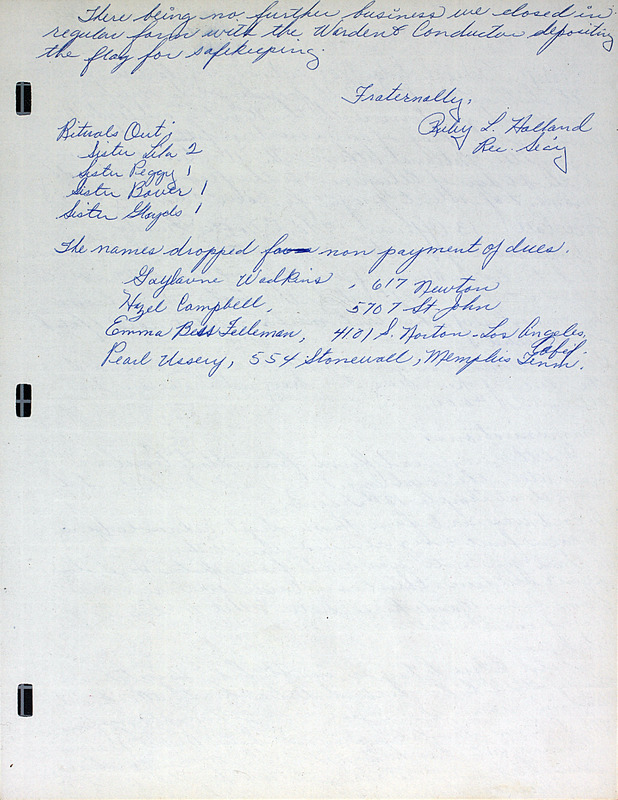 There being no further business we closed in
regular form with the Warden & Conductor depositing
the flag for safekeeping.
Fraternally,
Ruby L. Holland
Rec. Sec'y
Rituals Out;
Sister Lila 2
Sister Peggy 1
Sister Bower 1
Sister Gloyds 1
The names dropped for non payment of dues.
Gaylavne Wadkins, 617 Newton
Hazel Campbell, 5707 St John
Emma Bess Felleman, 4101 S. Norton - Los Angeles,
Calif.
Pearl Ussery, 554 Stonewall, Memphis Tenn.